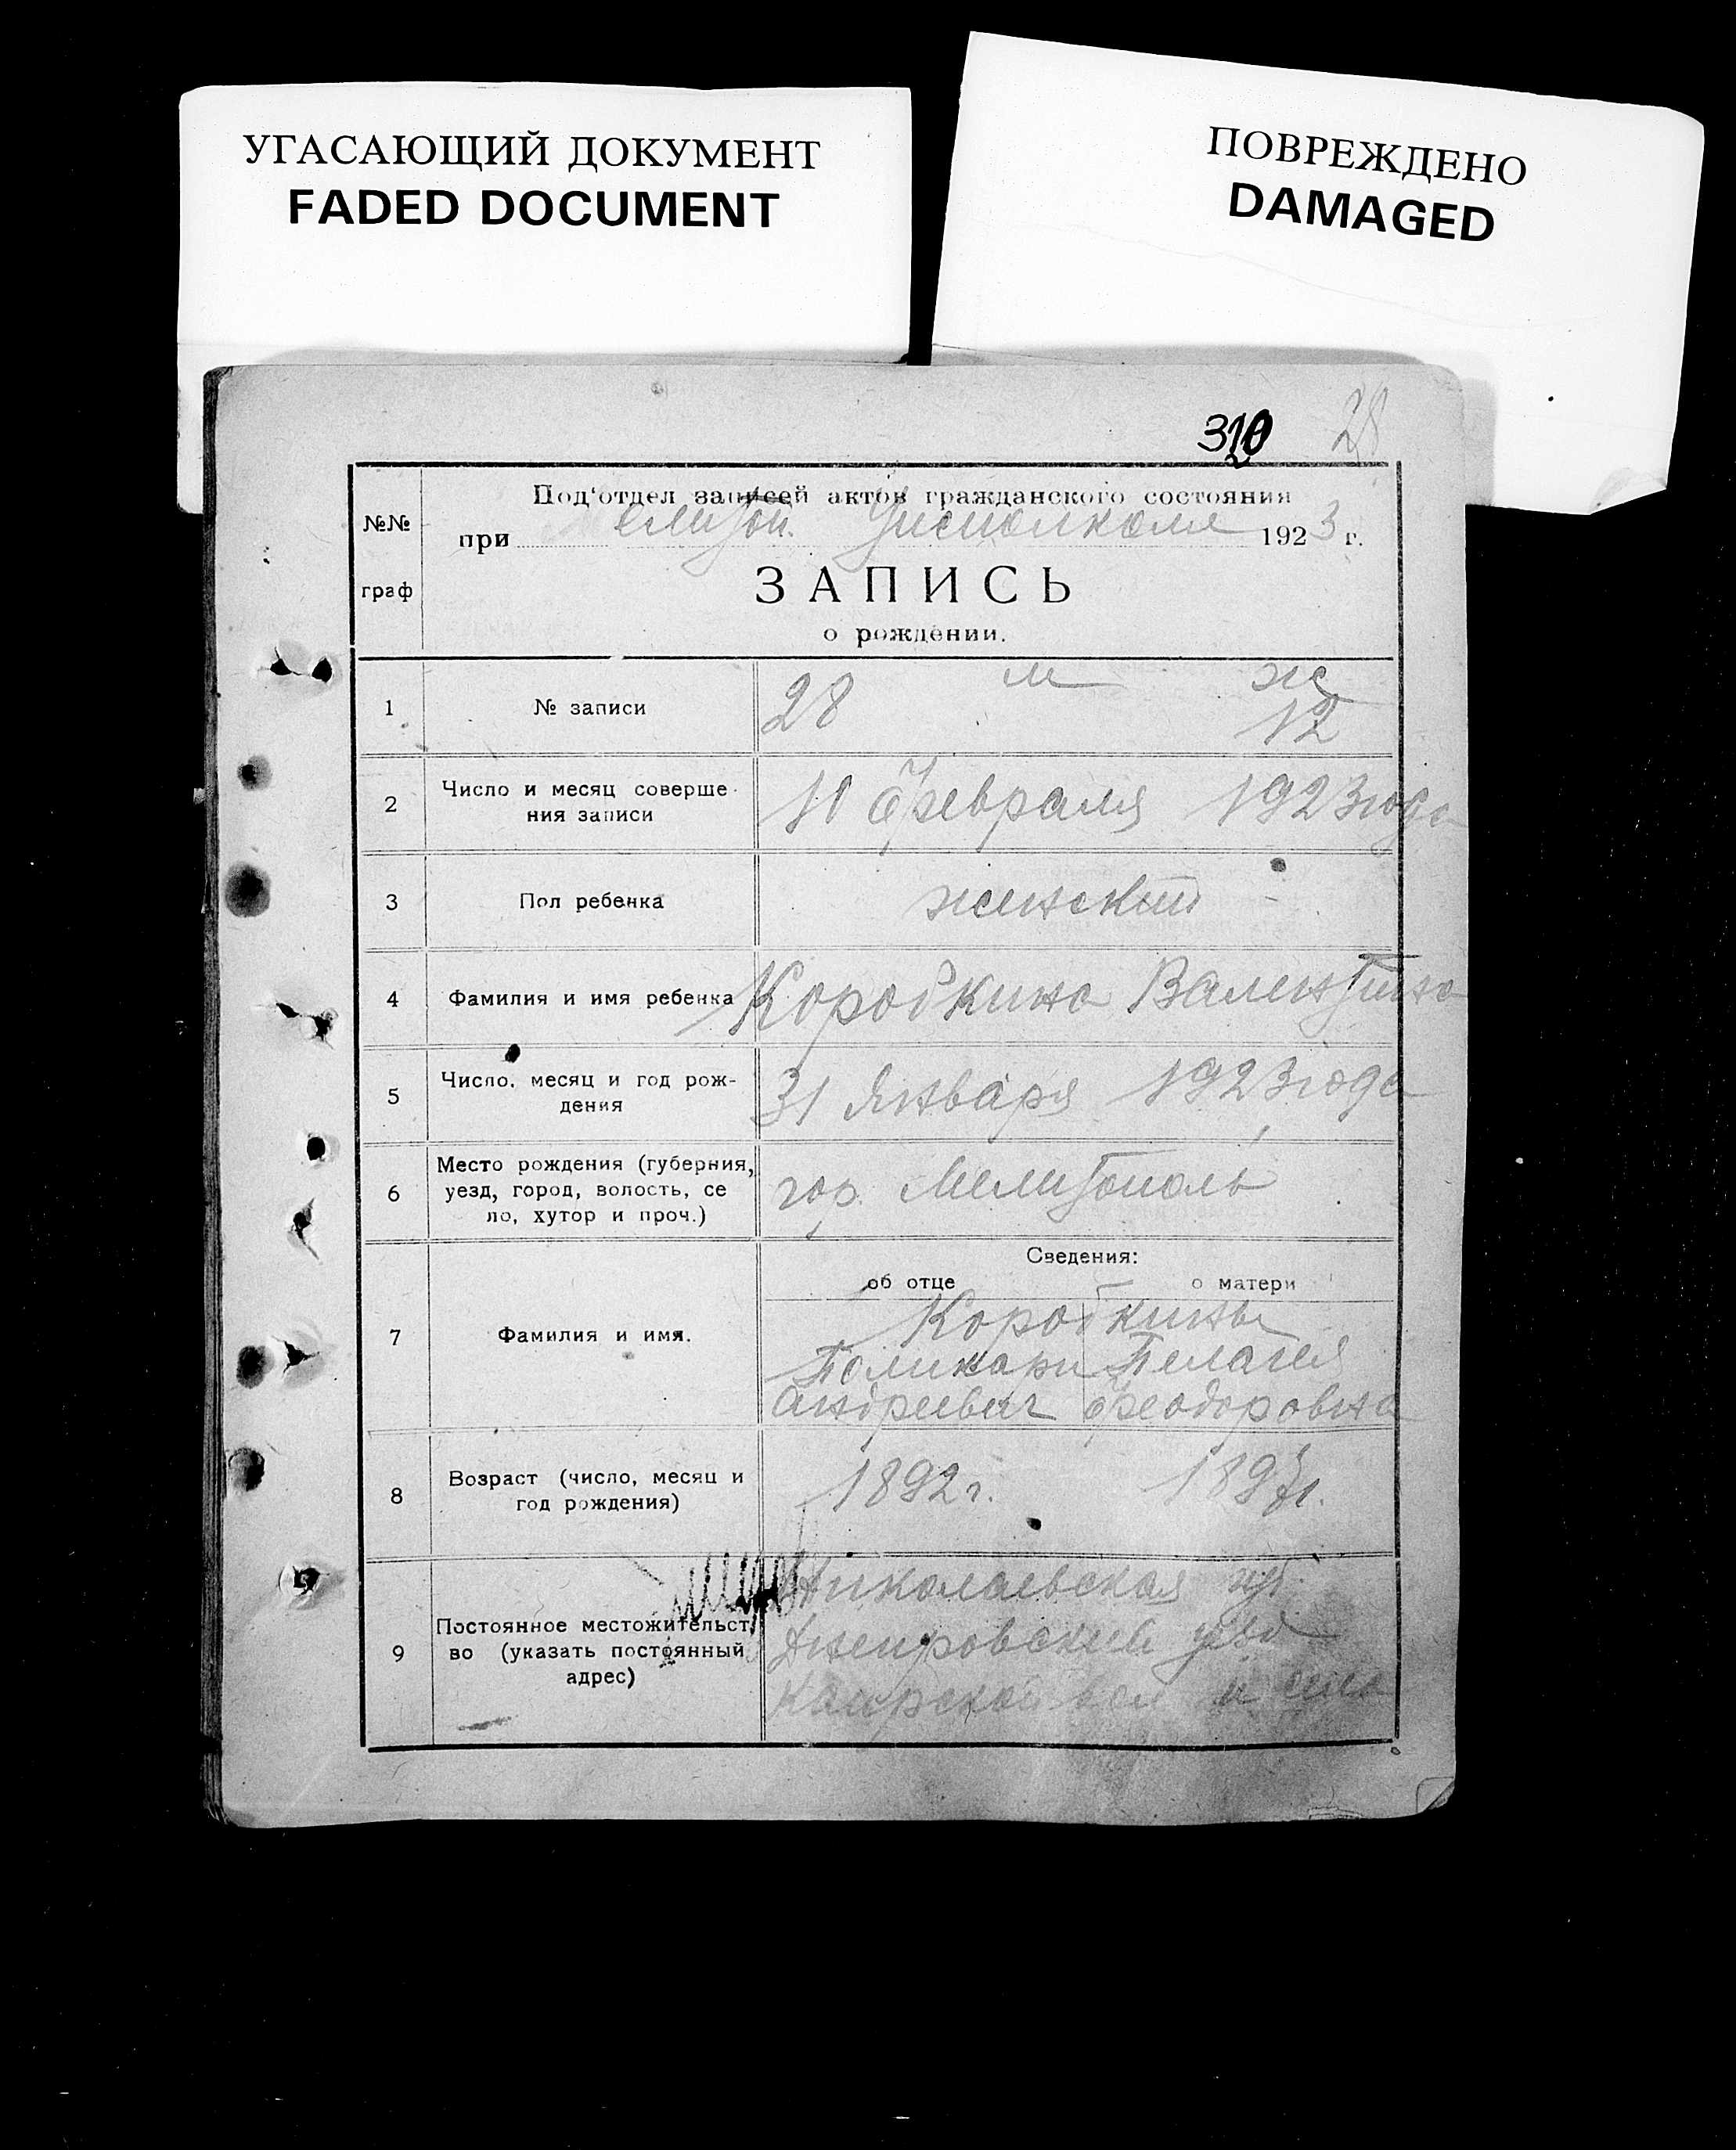 УГАСАЮЩИЙ ДОКУМЕНТ
FADED DOCUMENT
ПОВРЕЖДЕНО
DAMAGED
28
№№
граф
Под'отдел записей актов гражданского состояния
при Мелитоп. Уисполкоме 1923 г.
ЗАПИСЬ
о рождении.
1 № записи 28 м ж
12
2 Число и месяц соверше-
ния записи
10 февраля 1923 года
3 Пол ребенка женский
4 Фамилия и имя ребенка Коробкина Валентина
5 Число, месяц и год рож-
дения
31 Января 1923 года
6 Место рождения (губерния,
уезд, город, волость, се
ло, хутор и проч.)
гор. Мелитополь
Сведения:
об отце о матери
7 Фамилия и имя.
Коробкины
Поликарп Пелагея
Андреевич Феодоровна
8 Возраст (число, месяц и
год рождения)
1892 г. 1897 г.
9 Постоянное местожительст-
во (указать постоянный
адрес)
Николаевская губ.
Днепровский уезд
Каирской вол и села